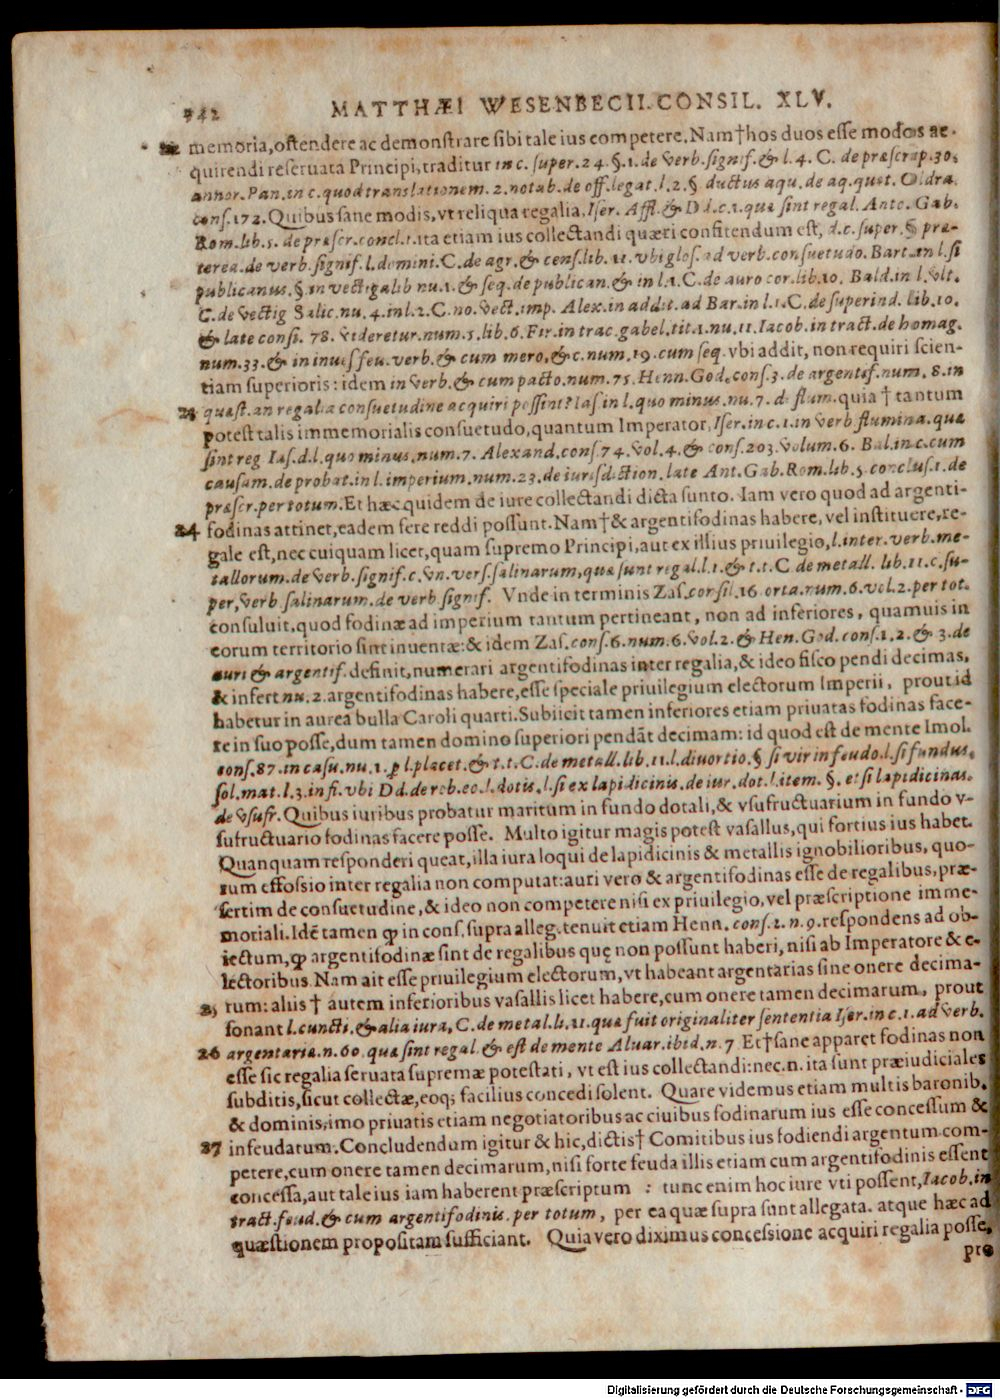 342 MATTHÆI WESENBECII. CONSIL. XLV.
22 memoria, ostendere ac demonstrare sibi tale ius competere. Nam † hos duos esse modos ac-
quirendi reseruata Principi, traditur in c. super. 24. §. 1. de verb. signif. & l. 4. C. de præscrip. 30.
annor. Pan. in c. quod translationem. 2. notab. de off. legat. l. 2. § ductus aqu. de aq. quot. Oldra.
cons. 172. Quibus sane modis, vt reliqua regalia, Iser. Affl. & Dd. c. 1. quæ sint regal. Anto. Gab.
Rom. lib. 5. de præscr. concl. 1. ita etiam ius collectandi quæri confitendum est, d. c. super. § præ-
terea. de verb. signif. l. domini. C. de agr. & cens. lib. 11. vbi glos. ad verb. consuetudo. Bart. in l. si
publicanus. §. in vectigalib nu. 1. & seq. de publican. & in l. 1. C. de auro cor. lib. 10. Bald. in l. vlt.
C. de vectig Salic. nu. 4. in l. 2. C. no. vect. imp. Alex. in addit. ad Bar. in l. 1. C. de superind. lib. 10.
& late consi. 78. videretur. num. 5. lib. 6. Fer. in trac. gabel. tit. 1. nu. 11. Iacob. in tract. de homag.
num. 33. & in inuest feu. verb. & cum mero, &c. num. 19. cum seq. vbi addit, non requiri scien-
tiam superioris: idem in verb. & cum pacto. num. 75. Henn. God. cons. 3. de argentif. num. 8. in
23 quæst. an regalia consuetudine acquiri possint? Ias. in l. quo minus. nu. 7. de flum. quia † tantum
potest talis immemorialis consuetudo, quantum Imperator, Iser. in c. 1. in verb flumina. quæ
sint reg Ias. d. l. quo minus. num. 7. Alexand. cons. 74. vol. 4. & cons. 203. volum. 6. Bal. in c. cum
causam. de probat. in l. imperium. num. 23. de iurisdiction. late Ant. Gab. Rom. lib. 5. conclus. 1. de
præscr. per totum. Et hæc quidem de iure collectandi dicta sunto. Iam vero quod ad argenti-
24 fodinas attinet, eadem fere reddi possunt. Nam † & argentifodinas habere, vel instituere, re-
gale est, nec cuiquam licet, quam supremo Principi, aut ex illius priuilegio, l. inter. verb. me-
tallorum. de verb. signif. c. vn. vers. salinarum, quæ sunt regal. l. 1. & t. t. C. de metall. lib. 11. c. su-
per, verb. salinarum. de verb. signif. Vnde in terminis Zas. consil. 16 orta. num. 6. vol. 2. per tot.
consuluit, quod fodinæ ad imperium tantum pertineant, non ad inferiores, quamuis in
eorum territorio sint inuentæ: & idem Zas. cons. 6. num. 6. vol. 2. & Hen. God. cons. 1. 2. & 3. de
auri & argentif. definit, numerari argentifodinas inter regalia, & ideo fisco pendi decimas,
& infert nu. 2. argentifodinas habere, esse speciale priuilegium electorum Imperii, prout id
habetur in aurea bulla Caroli quarti. Subiicit tamen inferiores etiam priuatas fodinas face-
re in suo posse, dum tamen domino superiori pendāt decimam: id quod est de mente Imol.
cons. 87. in casu. nu. 1. ꝑ l. placet. & t. t. C. de metall. lib. 11. l. diuortio. § si vir in feudo. l. si fundus.
sol. mat. l. 3. in fi. vbi Dd. de reb. eo. l. dotis. l. si ex lapidicinis. de iur. dot. l. item. §. et si lapidicinas.
de vsufr. Quibus iuribus probatur maritum in fundo dotali, & vsufructuarium in fundo v-
sufructuario fodinas facere posse. Multo igitur magis potest vasallus, qui fortius ius habet.
Quanquam responderi queat, illa iura loqui de lapidicinis & metallis ignobilioribus, quo-
rum effossio inter regalia non computat: auri vero & argentifodinas esse de regalibus, præ-
sertim de consuetudine, & ideo non competere nisi ex priuilegio, vel præscriptione imme-
moriali. Idē tamen ꝙ in cons. supra alleg. tenuit etiam Henn. cons. 2. n. 9. respondens ad ob-
iectum, ꝙ argentifodinæ sint de regalibus quę non possunt haberi, nisi ab Imperatore & e-
lectoribus. Nam ait esse priuilegium electorum, vt habeant argentarias sine onere decima-
25 rum: aliis † autem inferioribus vasallis licet habere, cum onere tamen decimarum, prout
sonant l. cuncti. & alia iura, C. de metal. li. 11. quæ fuit originaliter sententia Iser. in c. 1. ad verb.
26 argentariæ. n. 60. quæ sint regal. & est de mente Aluar. ibid. n. 7. Et † sane apparet fodinas non
esse sic regalia seruata supremæ potestati, vt est ius collectandi: nec. n. ita sunt præiudiciales
subditis, sicut collectæ, eoq; facilius concedi solent. Quare videmus etiam multis baronib.
& dominis, imo priuatis etiam negotiatoribus ac ciuibus fodinarum ius esse concessum &
27 infeudatum. Concludendum igitur & hic, dictis † Comitibus ius fodiendi argentum com-
petere, cum onere tamen decimarum, nisi forte feuda illis etiam cum argentifodinis essent
concessa, aut tale ius iam haberent præscriptum : tunc enim hoc iure vti possent, Iacob. in
tract. feud. & cum argentifodinis. per totum, per ea quæ supra sunt allegata. atque hæc ad
quæstionem propositam sufficiant. Quia vero diximus concessione acquiri regalia posse,
pro
Digitalisierung gefördert durch die Deutsche Forschungsgemeinschaft - DFG